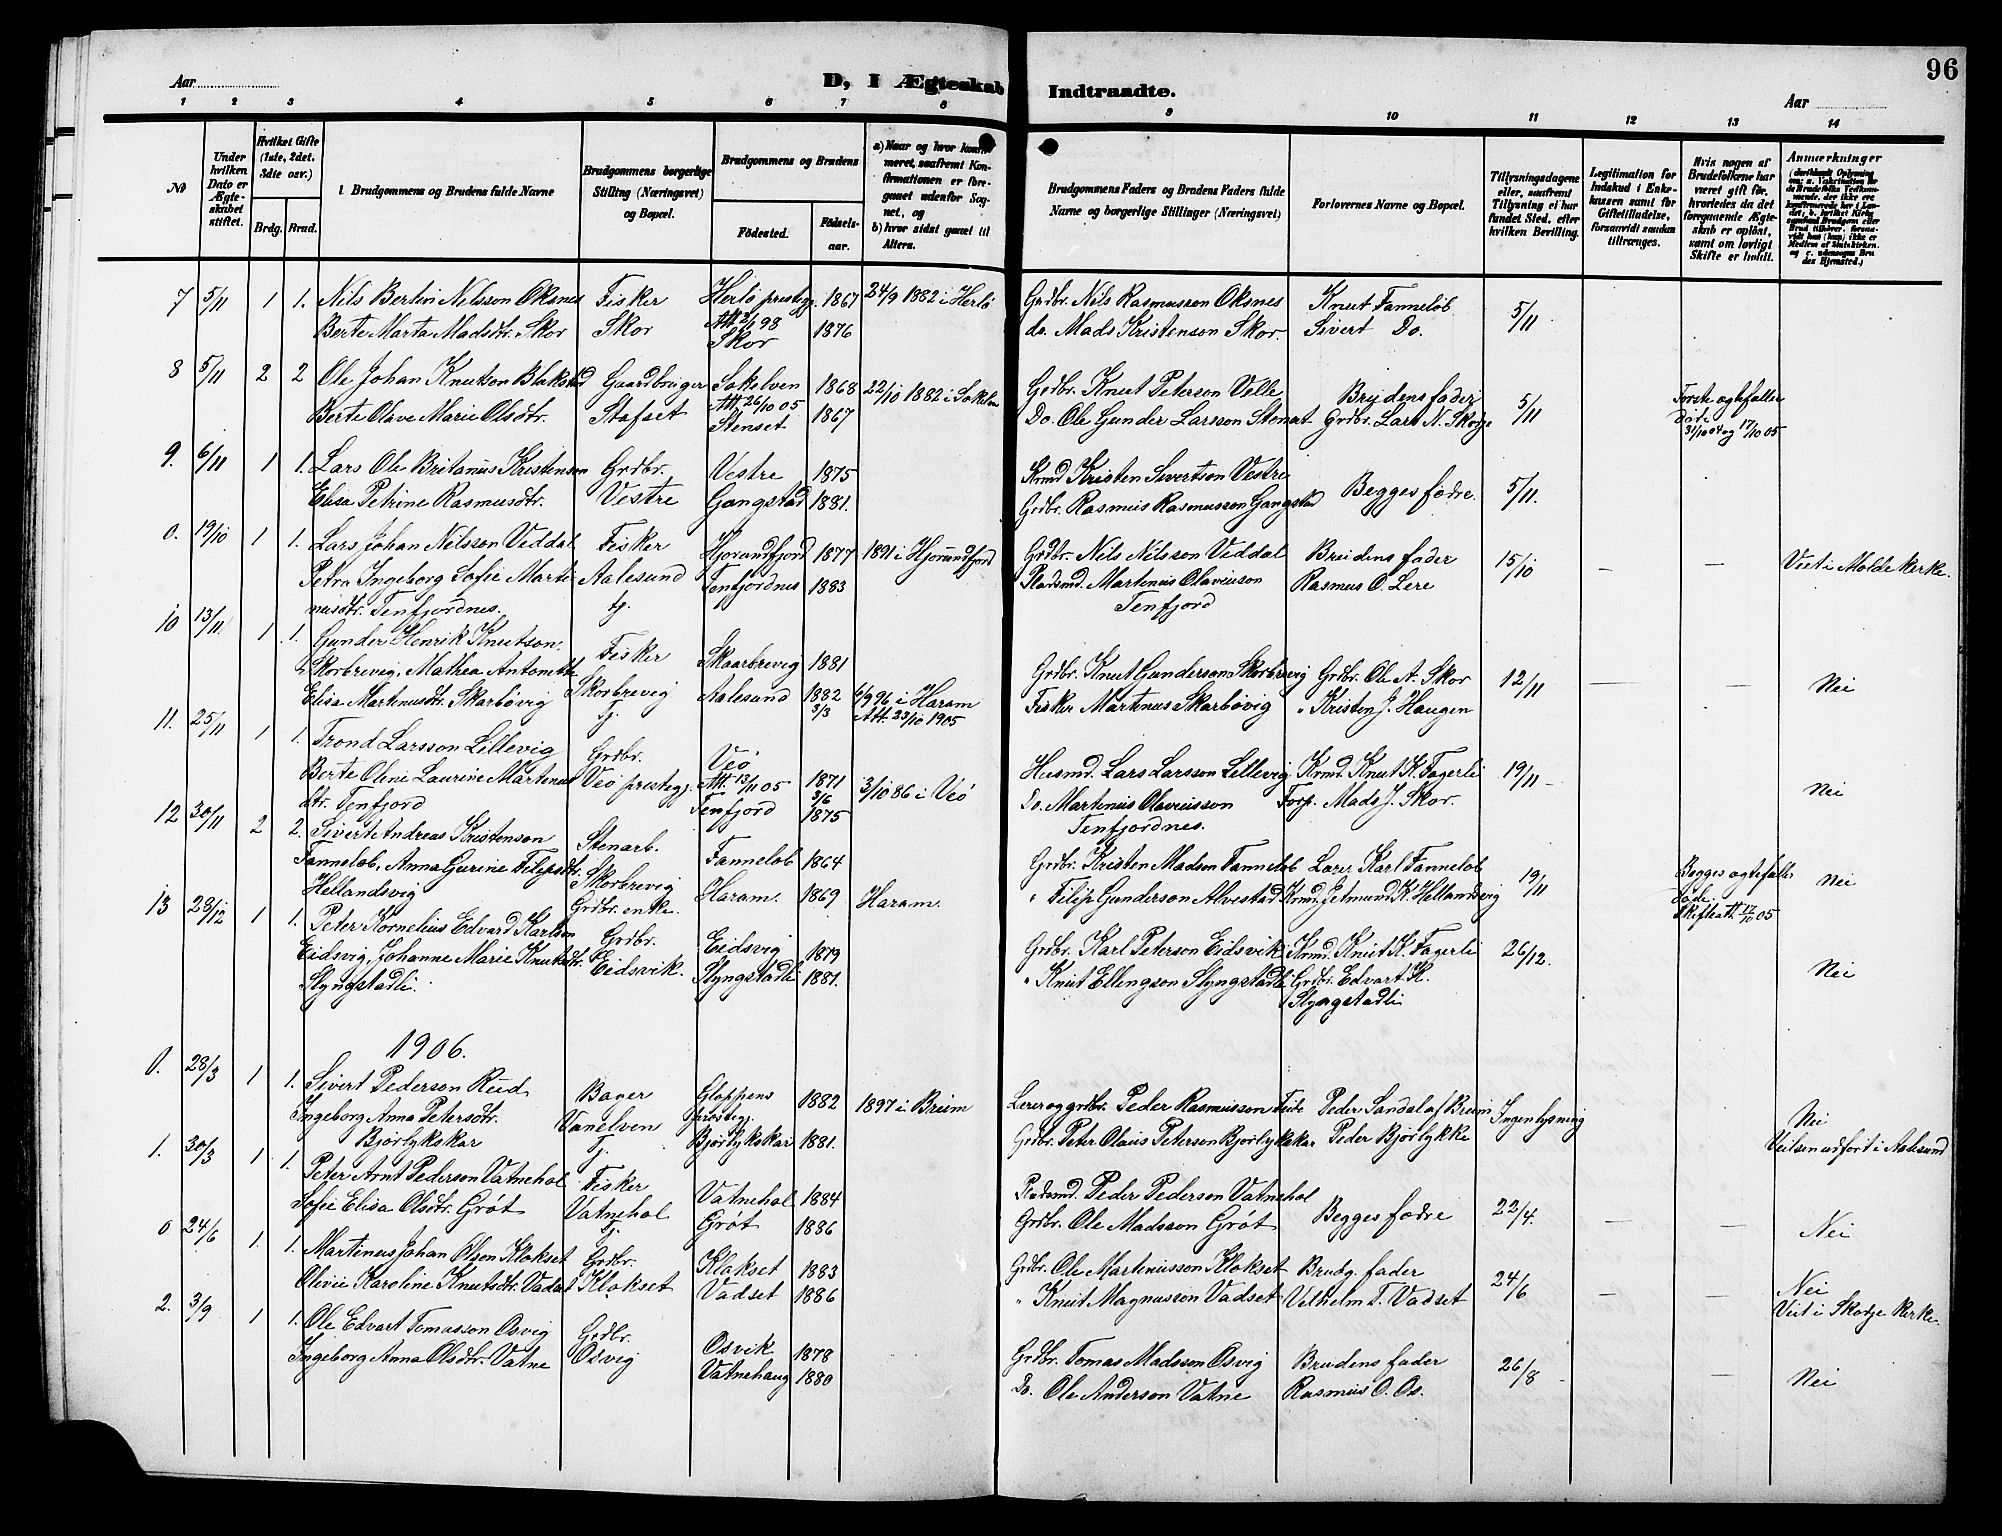 96
Aar
D, I Ægteskab Indtraadte.
Aar
1 2 3 4 5 6 7 8 9 10 11 12 13 14
No
Under hvilken Dato er Ægteskabet stiftet.
Hvilket Gifte (1ste, 2det, 3die osv.)
Brdg. Brud.
Brudgommens og Brudens fulde Navne
Brudgommens borgerlige Stilling (Næringsvei) og Bopæl.
Brudgommens og Brudens
Fødested. Fødselsaar.
Brudgommens Faders og Brudens Faders fulde Navne og borgerlige Stillinger (Næringsvei)
Forlovernes Navne og Bopæl.
Tillysningsdagene eller, saafremt Tillysning ei har fundet Sted, efter hvilken Bevilling.
Legitimation for Indskud i Enkekassen samt for Giftetilladelse, forsaavidt saadan tiltrænges.
Hvis nogen af Brudefolkene har været gift før, hvorledes da det foregaaende Ægteskab er opløst, samt om lovligt Skifte er holdt.
Anmærkninger
7 5/11 1 1. Nils Bertin Nilsson Oksnes Fisker Herlö prestegj. 1867 24/9 1882 i Herlö Grdbr. Nils Rasmusson Oksnes Knut Fannelöb 5/11
Berte Marta Madsdtr. Skor Skor Skor 1876 do. Mads Kristenson Skor. Sivert Do.
8 5/11 2 2 Ole Johan Knutson Blakstad Gaardbruger Sökelven 1868 22/10 1882 i Sökelven Grdbr. Knut Peterson Velle Brudens fader 5/11
Berte Olave Marie Olsdtr. Stafset Att. 26/10 05 Stenset 1867 Do. Ole Gunder Larsson Grdbr. Lars N. Skodje 31/10 04 og 17/10 05
9. 6/11 1 1. Lars Ole Britanus Kristenson Grdbr. Vestre 1875 Krmd Kristen Sivertson Vestre Begges fædre. 5/11.
Elisa Petrine Rasmusdtr. Vestre Gangstad 1881. Grdbr. Rasmus Rasmusson Gangstad
0. 19/10 1 1. Lars Johan Nilsson Viddal Fisker Hjorundfjord 1877 1891 i Hjörundfjord Grdbr. Nils Nilsson Viddal Brudens fader 15/10 — — Viet i Molde kerke.
Petra Ingeborg Sofie Marti Aalesund Tenfjordnes 1883 Pladsmd. Martinus Olaviusson Rasmus O. Lere
nusdtr. Tenfjordnes. Tj. Tenfjord
10 13/11 1 1. Gunder Henrik Knutson. Fisker Skaarbrevig 1881 Grdbr. Knut Gunderson Skorbrevig Grdbr. Ole A. Skor 12/11 — — Nei
Skorbrevig, Mathea Antonette Skorbrevig Aalesund 1882 3/3 i Haram Fisker Martinus Skarbövig " Kristen J. Haugen
Elisa Martinusdtr. Skarbövig Tj. Att. 23/10 1905
11. 25/11 1 1. Trond Larsson Lillevig Grdbr. Veö 1871 3/10 86 i Veö Husmd. Lars Larsson Lillevig Krmd. Knut K. Fagerli 19/11 — Nei
Berte Oline Laurine Martinus Veö prestegj. Att. 13/11 05 3/6 Do. Martinus Olaviusson Forp. Mads J. Skor.
dtr. Tenfjord Tenfjord 1875 Tenfjordnes.
12 30/11 2 2. Sivert Andreas Kristenson Stenarb. Fannelöb 1864 Grdbr. Kristen Madson Fannelöb Lærer Karl Fannelöb 19/11 Begges ægtefæller döde. Nei
Fannelöb, Anna Gurine Filipsdtr. Skorbrevig Haram. 1869 Haram. " Filip Gunderson Alvestad Krmd. Jetmund K. Hellandsvig
Hellandsvig Grdbr. enke.
13 28/12 1 1. Peter Kornelius Edvard Karlson Grdbr. Eidsvig 1879 Grdbr. Karl Peterson Eidsvik Krmd. Knut K. Fagerli 26/12. Nei
Eidsvig, Johanne Marie Knutsdtr. Eidsvik. Slyngstadli 1881. " Knut Ellengson Slyngstadli Grdbr. Edvart K.
Slyngstadli. Slyngstadli
1906.
0. 28/3 1 1. Sivert Pederson Rud Bager Gloppens prestegj. 1882 1897 i Breim Lærer og grdbr. Peder Rasmusson Peder Sandal af Breim Ingen lysning Nei
Ingeborg Anna Petersdtr. Vanelven Björlykskar 1881. Grdbr. Peter Olaus Peterson Björlykskar Peder Björlykke Vielsen udfört i Aalesund
Björlykskar Tj.
1. 30/3 1 1. Peter Arnt Pederson Vatnehol Fisker Vatnehol 1884 Pladsmd. Peder Pederson Vatnehol Begges fædre 22/4. — — Nei
Sofie Elisa Olsdtr. Gröt Vatnehol Gröt 1886 Grdbr. Ole Madsson Gröt
Tj.
0. 24/6 1. 1. Martinus Johan Olson Klokset Grdbr. Klokset 1883 Grdbr. Ole Martinusson Klokset Brudg. fader 24/6 — — Nei
Olivie Karoline Knutsdtr. Vadset Klokset Vadset 1886 " Knut Magnusson Vadset Vilhelm T. Vadset Viet i Skodje kerke.
2. 3/9 1 1. Ole Edvart Tomasson Osvig Grdbr. Osvik 1878 Grdbr. Tomas Madsson Osvig Brudens fader 26/8 — — Nei
Ingeborg Anna Olsdtr. Vatne Osvig Vatnehaug 1880 Do. Ole Anderson Vatne Rasmus O. Os.